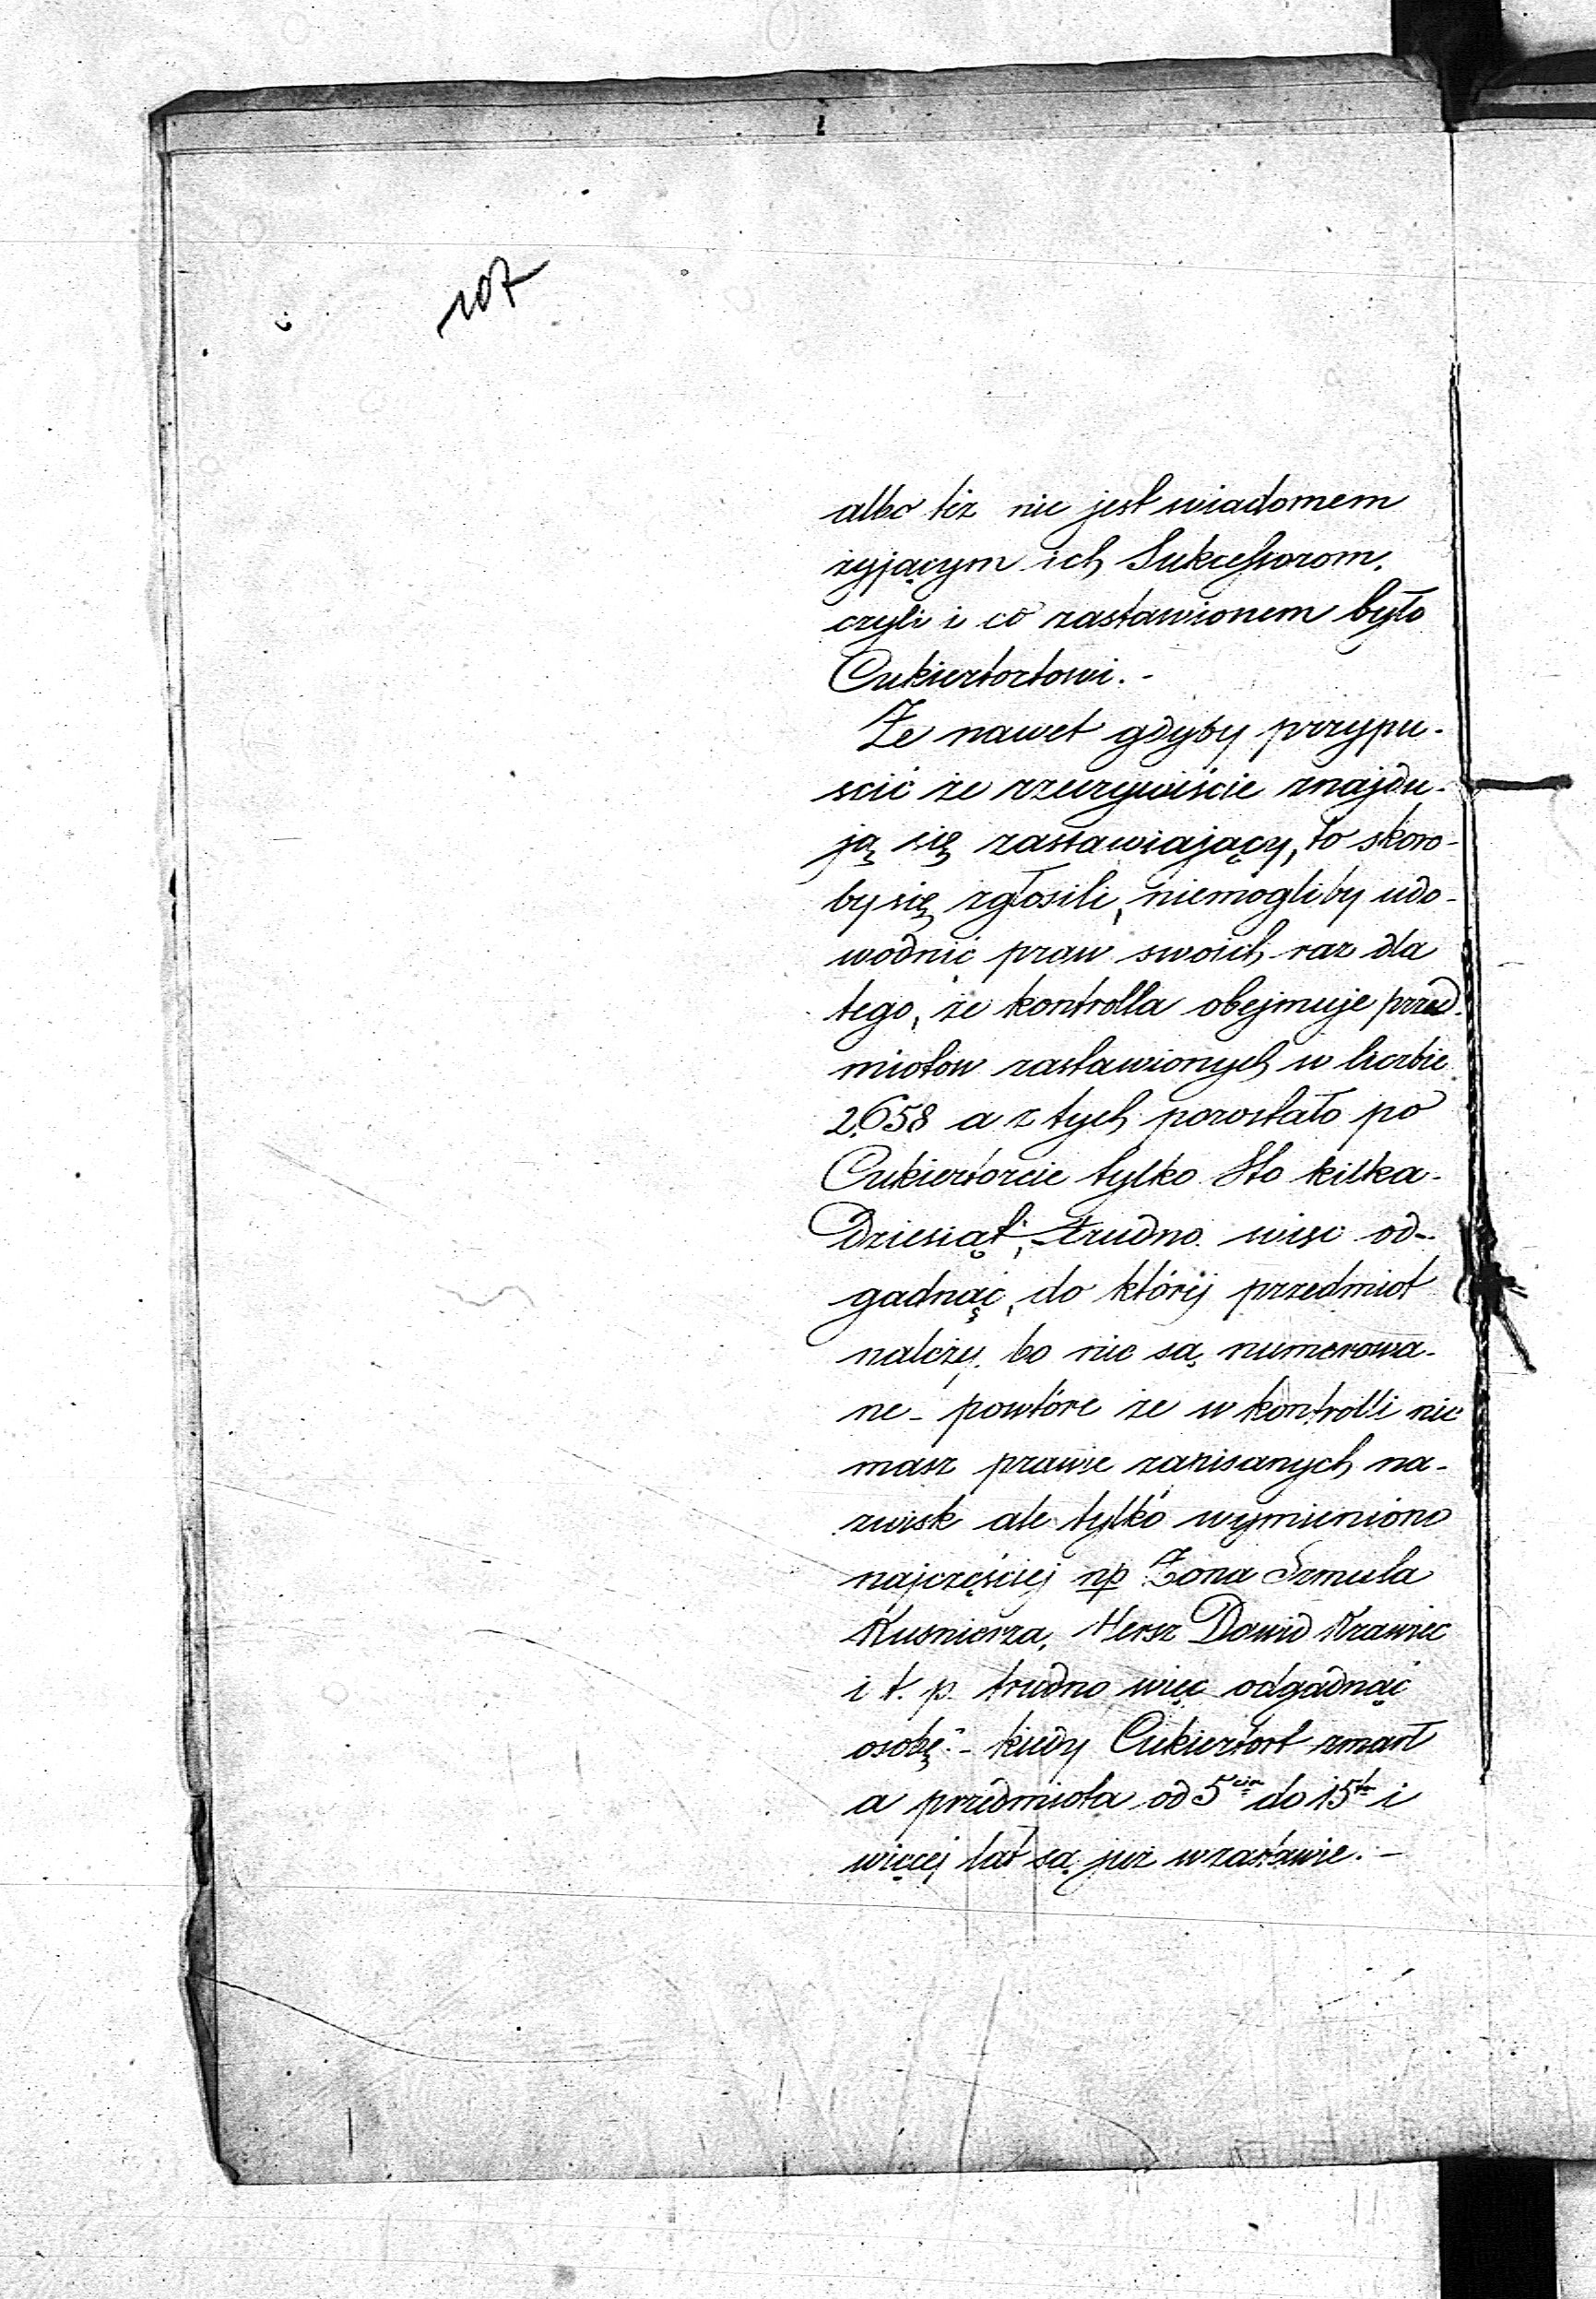 107
albo też nie jest wiadomem
żyjącym ich Sukcessorom,
czyli i co zastawionem było
Cukiertortowi. -
Że nawet gdyby przypu-
scić że rzeczywiście znajdu-
ją się zastawiający, to skoro-
by się zgłosili, niemogliby udo-
wodnić praw swoich raz dla
tego, że kontrolla obejmuje przed-
miotow zastawionych w liczbie
2,658 a z tych pozostało po
Cukiertorcie tylko Sto kilka-
dziesiąt, trudno więc od-
gadnąć, do której przedmiot
należy, bo nie są numerowa-
ne - powtóre że w kontrolli nie
masz prawie zapisanych na-
zwisk ale tylko wymieniono
najczęściej np Żona Szmula
Kusnierza, Hersz Dawid Krawiec
i t. p. trudno więc odgadnąć
osobę - kiedy Cukiertort zmarł
a przedmiota od 5ciu do 15tu i
więcej lat są już w zastawie. -